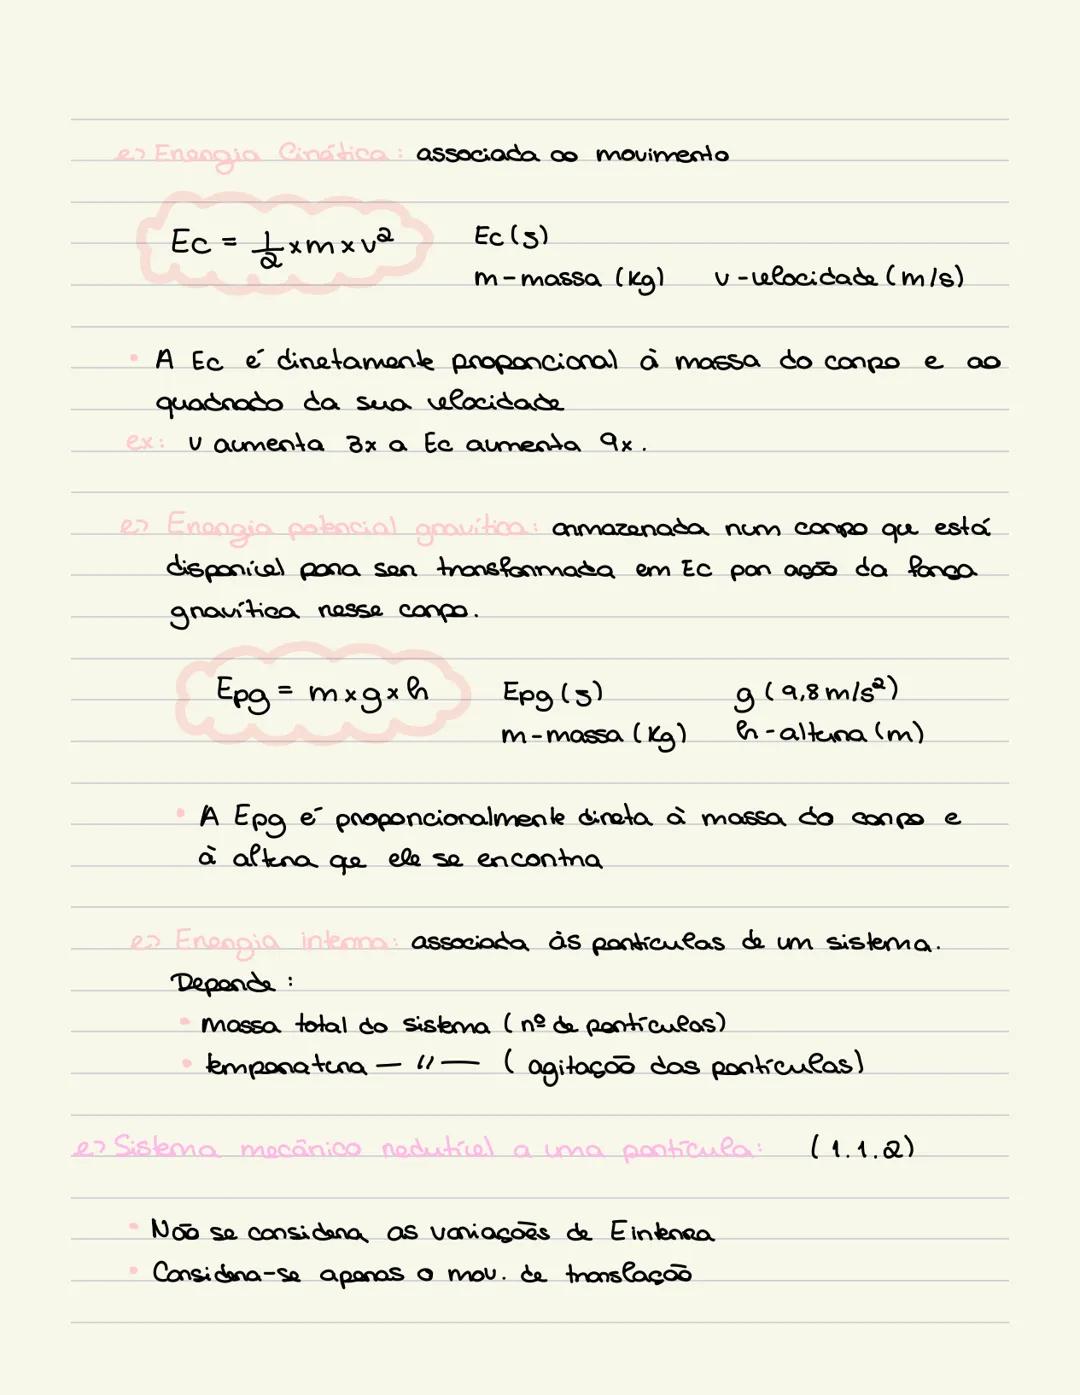 ↳ Energia Cinética: associada ao movimento
Ec = 1/2 x m x v² Ec (J)
m - massa (Kg) v - velocidade (m/s)
• A Ec é diretamente proporcional à massa do corpo e ao
quadrado da sua velocidade
ex: v aumenta 3x a Ec aumenta 9x.
↳ Energia potencial gravítica: armazenada num corpo que está
disponível para ser transformada em Ec por ação da força
gravítica nesse corpo.
Epg = m x g x h Epg (J) g (9,8 m/s²)
m - massa (Kg) h - altura (m)
• A Epg é proporcionalmente direta à massa do corpo e
à altura qe ele se encontra
↳ Energia interna: associada às partículas de um sistema.
Depende:
• massa total do sistema (nº de partículas)
• temperatura — '' — (agitação das partículas)
↳ Sistema mecânico redutível a uma partícula: (1.1.2)
• Não se considera as variações de E interna
• Considera-se apenas o mov. de translação